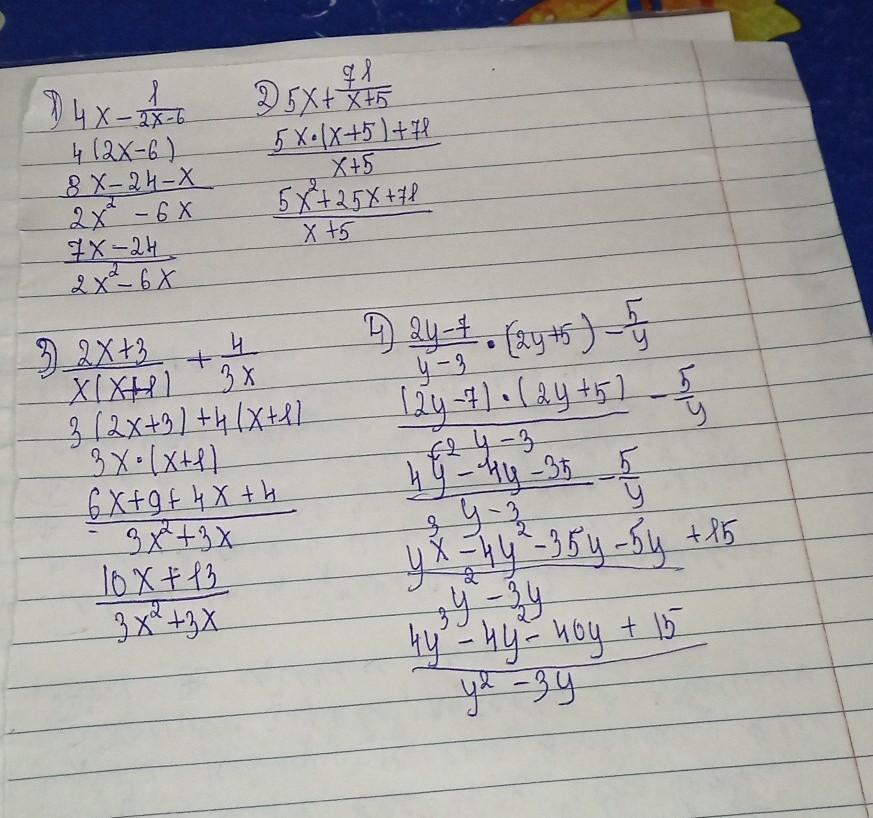 1) 4x - 1/(2x-6)
4(2x-6)
(8x-24-x)/(2x²-6x)
(7x-24)/(2x²-6x)
2) 5x + 71/(x+5)
(5x·(x+5)+71)/(x+5)
(5x²+25x+71)/(x+5)
3) (2x+3)/(x(x+1)) + 4/(3x)
3(2x+3)+4(x+1)
3x·(x+1)
(6x+9+4x+4)/(3x²+3x)
(10x+13)/(3x²+3x)
4) (2y-7)/(y-3)·(2y+5) - 5/y
((2y-7)·(2y+5))/(y-3) - 5/y
(4y²-4y-35)/(y-3) - 5/y
(y³-4y²-35y-5y+15)/(y²-3y)
(4y³-4y²-40y+15)/(y²-3y)